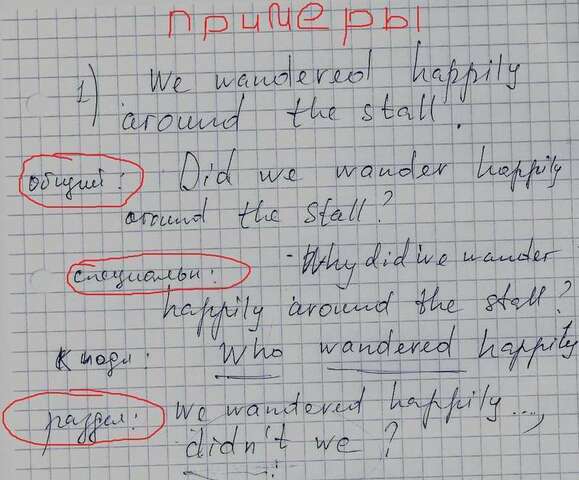 примеры
1) We wandered happily
around the stall.
общий: Did we wander happily
around the stall?
специальн: Why did we wander
happily around the stall?
к подл: Who wandered happily
раздел: We wandered happily...,
didn't we?